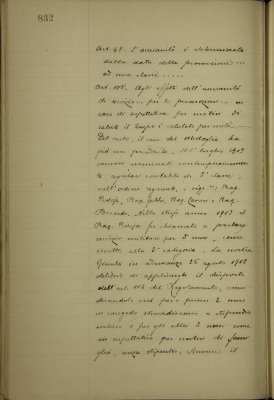 832
Art. 48. L'anzianità è determinata
dalla data della promozione ...
ad una classe .....
Art. 105. Agli effetti dell'anzianità
di servizio, per le promozioni ... in
caso di aspettativa per motivi di
salute il tempo è calcolato per metà ....
Del resto, il caso del Medaglia ha
già un precedente. Il 1° luglio 1903
vennero nominati contemporaneamente
ragionieri contabili di 3ª classe,
nell'ordine seguente, i sigg.ri; Rag.
Rag. Rag.
Nello stesso anno 1903 il
Rag. fu chiamato a prestare
servizio militare per 5 mesi, come
iscritto alla 2ª categoria. La nostra
Giunta in adunanza 25 agosto 1903
deliberò di applicargli il disposto
dell'art. 114 del Regolamento, consi-
derandolo cioè per i primi 2 mesi
in congedo straordinario a stipendio
intiero e per gli altri 3 mesi come
in aspettativa per motivi di fami-
glia, senza stipendio. Sennonchè il